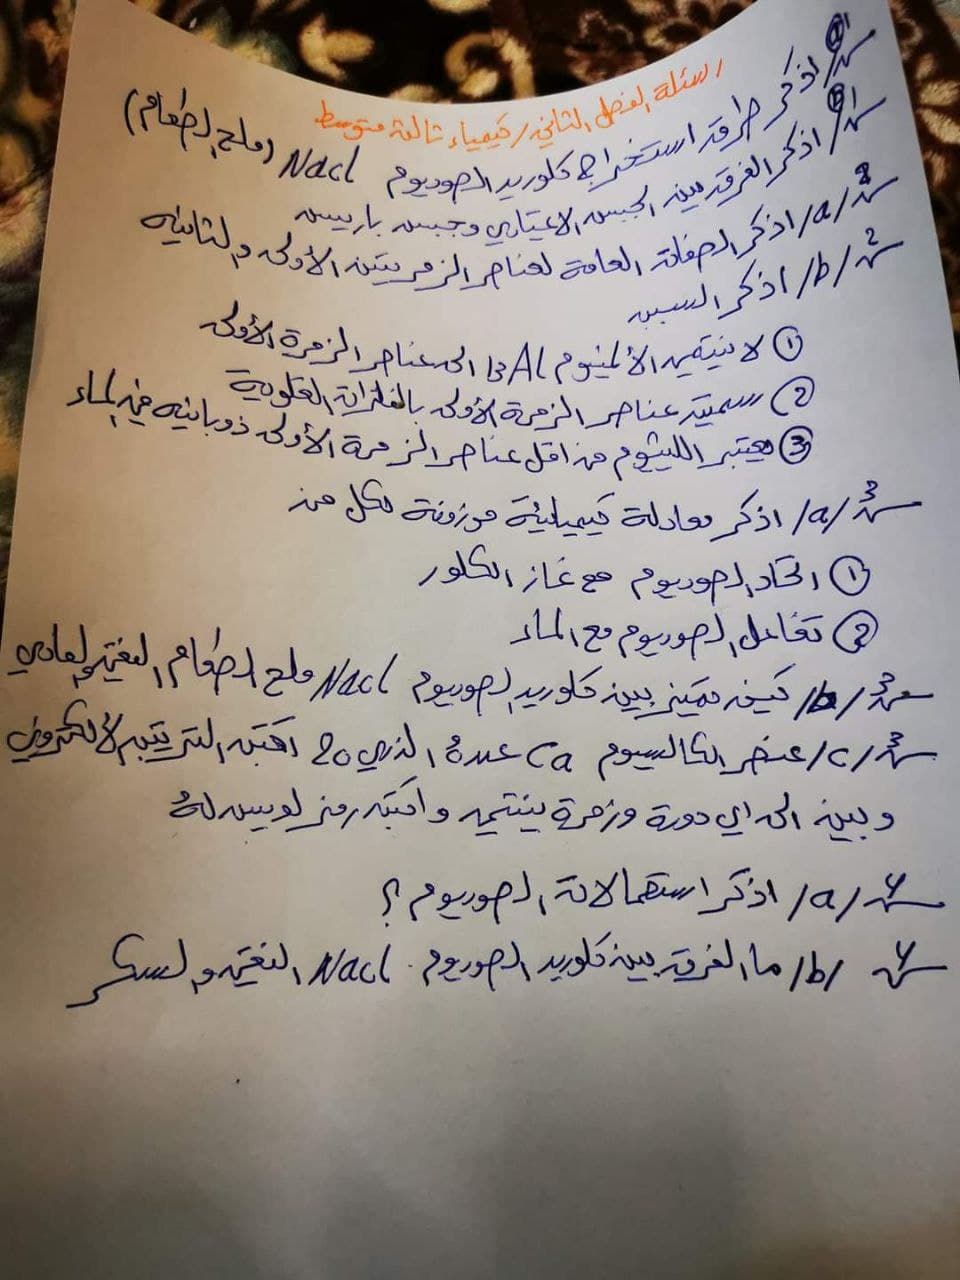 اسئلة الفصل الثاني / كيمياء ثالث متوسط
س1/ a اذكر طرق استخراج كلوريد الصوديوم Nacl (ملح الطعام)
س1/ B اذكر الفرق بين الجبس الاعتيادي وجبس باريس
س2/a/ اذكر الصفات العامة لعناصر الزمرتين الأولى والثانيه
س2/b/ اذكر السبب
① لا ينتمي الألمنيوم AL 13 الى عناصر الزمرة الأولى
② سميت عناصر الزمرة الأولى بالفلزات القلوية
③ يعتبر الليثيوم من اقل عناصر الزمرة الأولى ذوبانيه في الماء
س3/a/ اذكر معادلة كيميائية موزونة لكل من
① اتحاد الصوديوم مع غاز الكلور
② تفاعل الصوديوم مع الماء
س3/b/ كيف تميز بين كلوريد الصوديوم Nacl ملح الطعام النقي والعادي
س3/c/ عنصر الكالسيوم Ca عددهُ الذري 20 اكتب الترتيب الألكتروني
وبين الى اي دورة وزمرة ينتمي واكتب رمز لويس لهُ
س4/a/ اذكر استعمالات الصوديوم ؟
س4/b/ ما الفرق بين كلوريد الصوديوم Nacl النقي والسكر